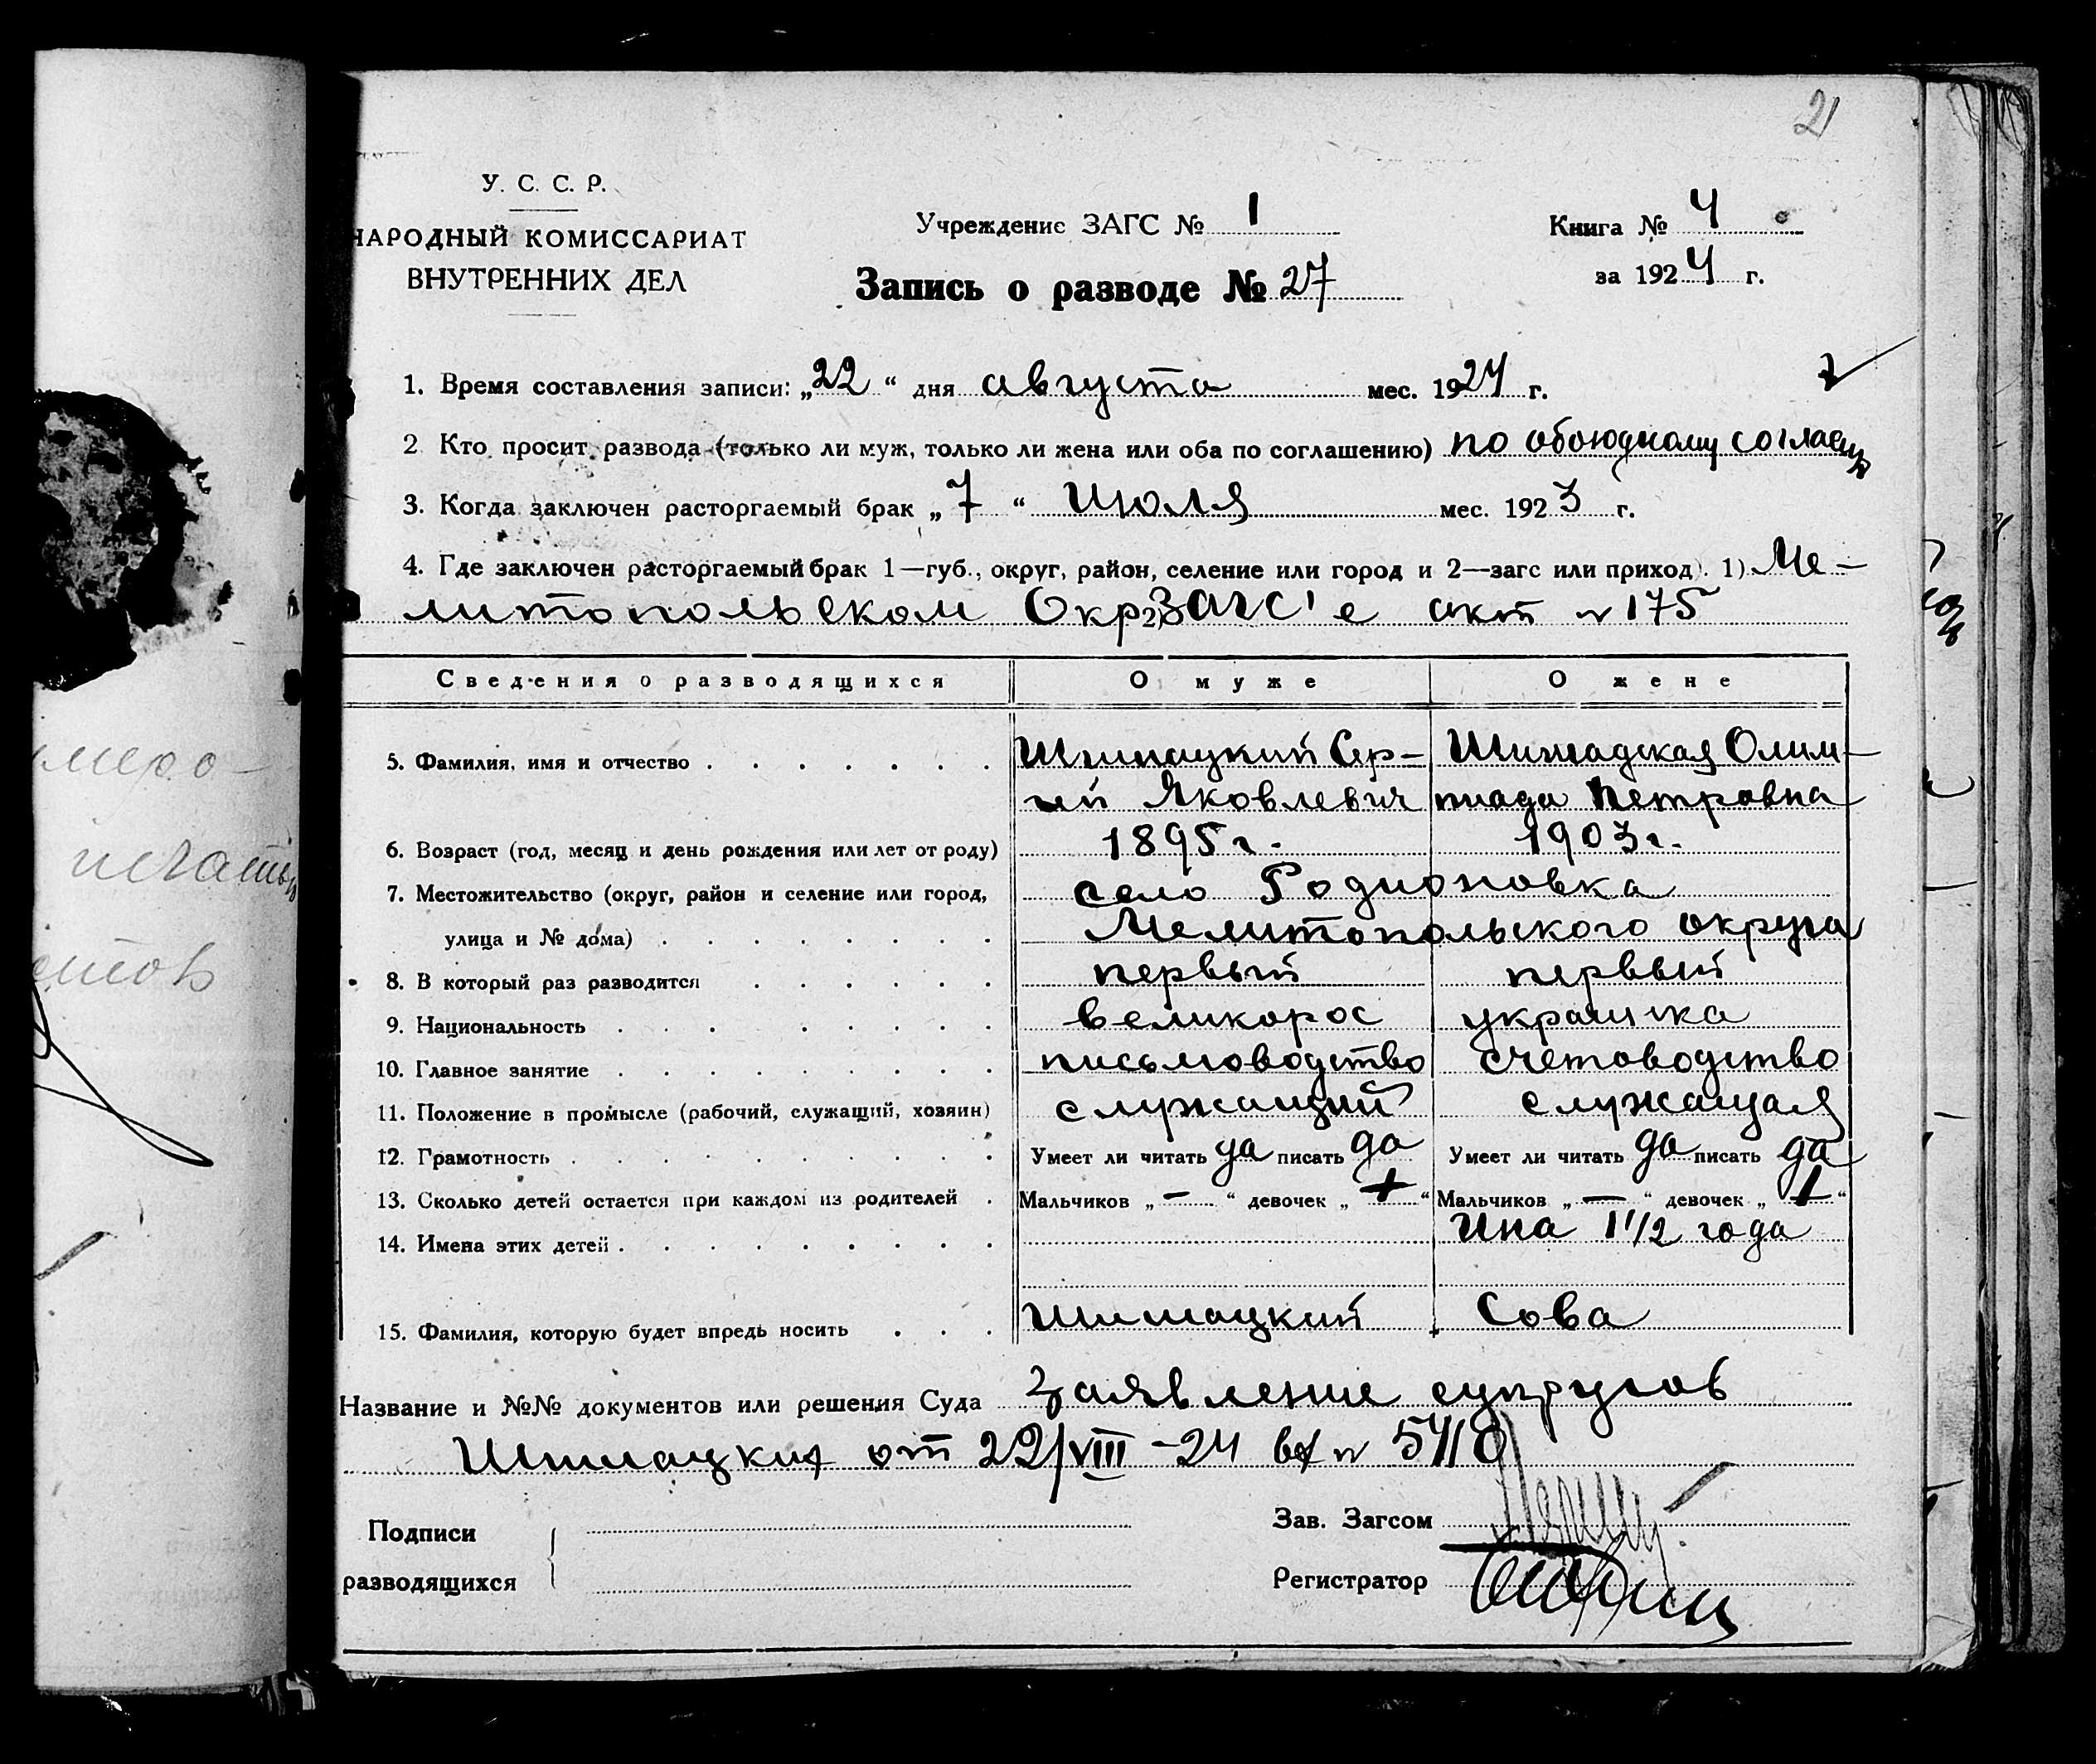 21
У. С. С. Р.
НАРОДНЫЙ КОМИССАРИАТ
ВНУТРЕННИХ ДЕЛ
Учреждение ЗАГС № 1
Книга № 4
за 1924 г.
Запись о разводе № 27
1. Время составления записи: „22“ дня августа мес. 1924 г.
2 Кто просит развода (только ли муж, только ли жена или оба по соглашению) по обоюдному согласию
3. Когда заключен расторгаемый брак „7“ июля мес. 1923 г.
4. Где заключен расторгаемый брак 1—губ., округ, район, селение или город и 2—загс или приход). 1) Ме-
литопольском Окр 2) ЗАГС'е акт № 175
Сведения о разводящихся О муже О жене
5. Фамилия, имя и отчество Шимацкий Сер- Шимацкая Олим-
гей Яковлевич пиада Петровна
6. Возраст (год, месяц и день рождения или лет от роду) 1895 г. 1903 г.
7. Местожительство (округ, район и селение или город, село Родионовка
улица и № дома) Мелитопольского округа
8. В который раз разводится первый первый
9. Национальность великорос украинка
10. Главное занятие письмоводство счетоводство
11. Положение в промысле (рабочий, служащий, хозяин) служащий служащая
12. Грамотность Умеет ли читать да писать да Умеет ли читать да писать да
13. Сколько детей остается при каждом из родителей Мальчиков „—“ девочек „+“ Мальчиков „—“ девочек „1“
14. Имена этих детей Ина 1 1/2 года
15. Фамилия, которую будет впредь носить Шимацкий Сова
Название и №№ документов или решения Суда Заявление супругов
Шимацких от 22/VIII-24 вх №
Подписи
разводящихся
Зав. Загсом
Регистратор
печатью